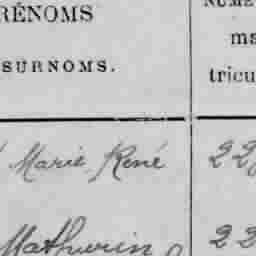 RÉNOMS
SURNOMS.
NUMÉ
ma
tricu
Marie René 22
Mathurin 22